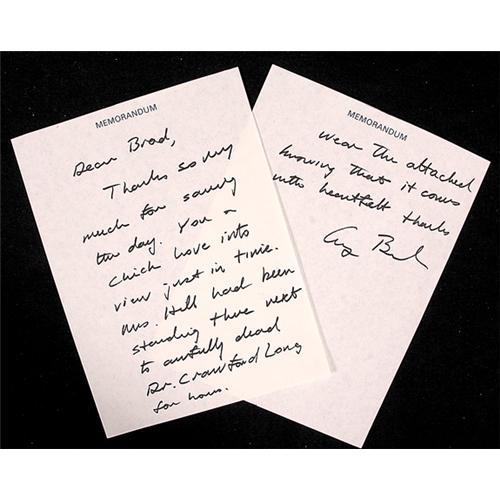 MEMORANDUM
Dear Brad,
Thanks so very
much for saving
the day. You &
Chick hove into
view just in time.
Mrs. Hill had been
standing there next
to awfully dead
Dr. Crawford Long
for hours.
MEMORANDUM
Wear the attached
knowing that it comes
with heartfelt thanks